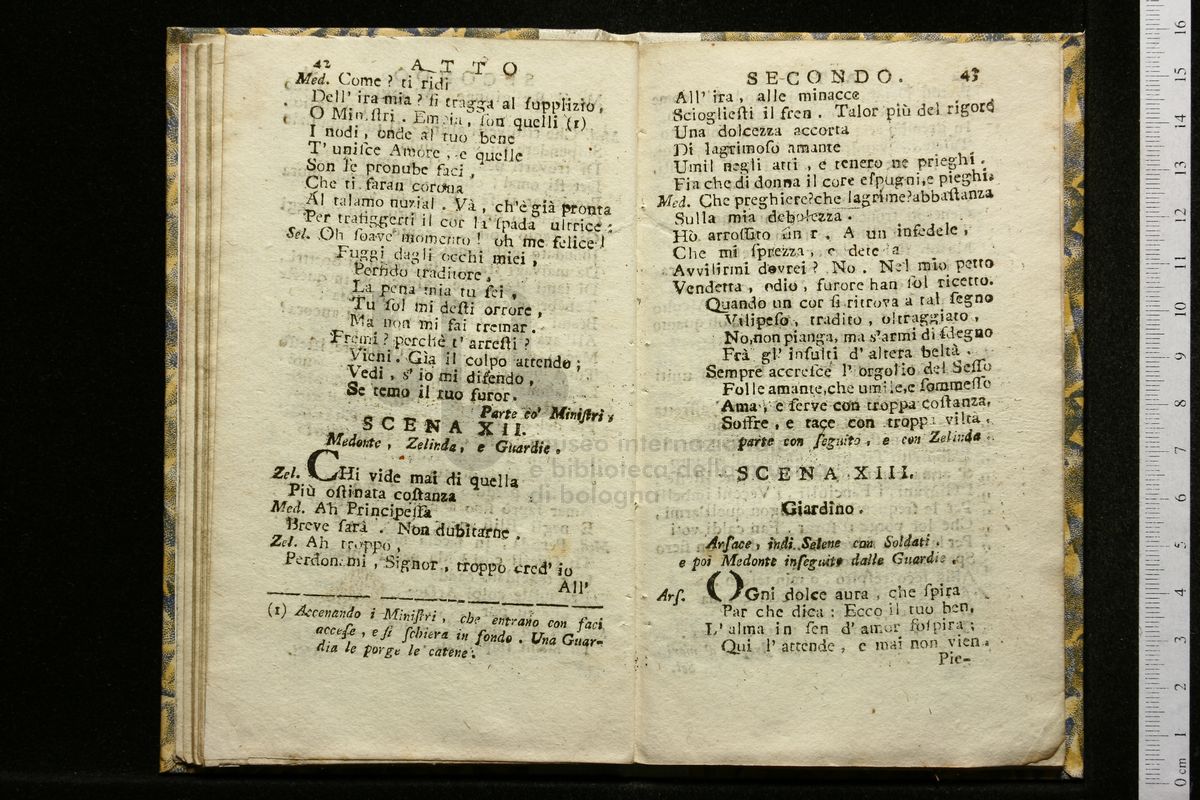 42 ATTO
Med. Come ? ti ridi
Dell' ira mia ? si tragga al supplizio,
O Ministri . Empia, son quelli (1)
I nodi, onde al tuo bene
T' unisce Amore, e quelle
Son le pronube faci,
Che ti faran corona
Al talamo nuzial. Và, ch'è già pronta
Per trafiggerti il cor la spada ultrice:
Sel. Oh soave momento ! oh me felice!
Fuggi dagli occhi miei,
Perfido traditore,
La pena mia tu sei,
Tu sol mi desti orrore,
Ma non mi fai tremar.
Fremi ? perchè t' arresti ?
Vieni. Gìa il colpo attendo;
Vedi, s' io mi difendo,
Se temo il tuo furor.
Parte co' Ministri,
SCENA XII.
Medonte, Zelinda, e Guardie.
Zel. CHi vide mai di quella
Più ostinata costanza
Med. Ah Principessa
Breve sarà . Non dubitarne.
Zel. Ah troppo,
Perdonami, Signor, troppo cred' io
All'
(1) Accenando i Ministri, che entrano con faci
accese, e si schiera in fondo. Una Guar-
dia le porge le catene.
SECONDO. 43
All' ira, alle minacce
Sciogliesti il fren . Talor più del rigore
Una dolcezza accorta
Di lagrimoso amante
Umil negli atti, e tenero ne prieghi.
Fia che di donna il core espugni,e pieghi.
Med. Che preghiere?che lagrime?abbastanza
Sulla mia debolezza.
Hò arrossito A un infedele,
Che mi sprezza, e
Avvilirmi dovrei ? No. Nel mio petto
Vendetta, odio, furore han sol ricetto.
Quando un cor si ritrova a tal segno
Vilipeso, tradito, oltraggiato,
No,non pianga, ma s'armi di sdegno
Frà gl' insulti d' altera beltà.
Sempre accresce l' orgolio del Sesso
Folle amante,che umile,e sommesso
Ama, e serve con troppa costanza,
Soffre, e tace con troppa viltà.
parte con seguito, e con Zelinda.
SCENA XIII.
Giardino.
Arsace, indi Selene con Soldati.
e poi Medonte inseguito dalle Guardie.
Ars. OGni dolce aura, che spira
Par che dica : Ecco il tuo ben,
L' alma in sen d' amor sospira;
Qui l' attende, e mai non vien.
Pie-
museo internazionale
e biblioteca della
di bologna
16
15
14
13
12
11
10
9
8
7
6
5
4
3
2
1
0 cm